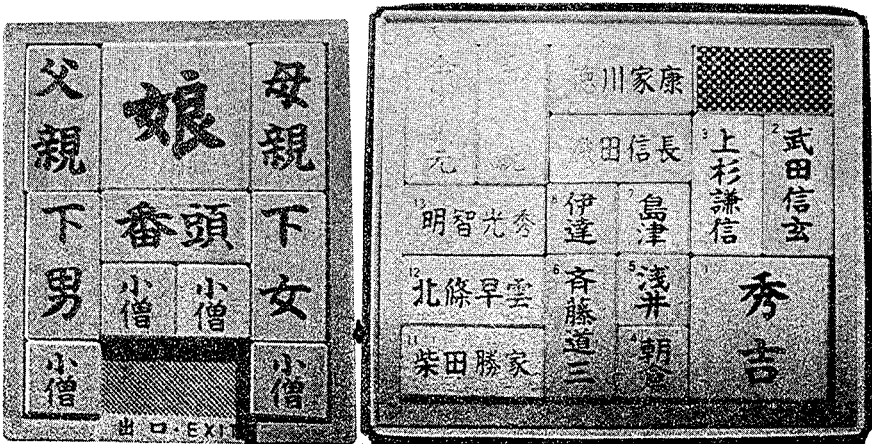 父親
娘
母親
下男
番頭
下女
小僧
小僧
小僧
小僧
出口・EXIT
徳川家康
織田信長
3 上杉謙信
2 武田信玄
13 明智光秀
8 伊達
7 島津
12 北條早雲
6 斉藤道三
5 浅井
1 秀吉
11 柴田勝家
4 朝倉